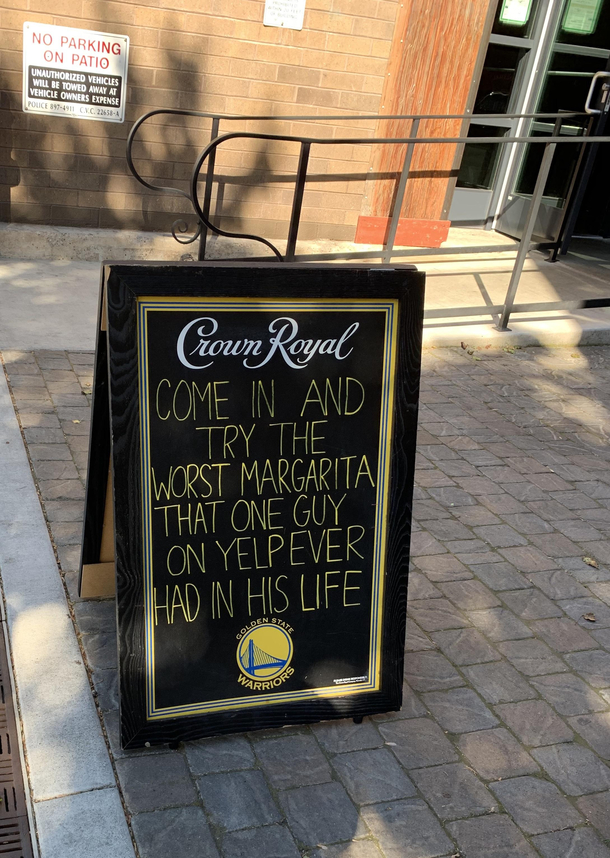 NO PARKING
ON PATIO
UNAUTHORIZED VEHICLES
WILL BE TOWED AWAY AT
VEHICLE OWNERS EXPENSE
POLICE 897-4911 C.V.C. 22658-A
Crown Royal
COME IN AND
TRY THE
WORST MARGARITA
THAT ONE GUY
ON YELP EVER
HAD IN HIS LIFE
GOLDEN STATE
WARRIORS